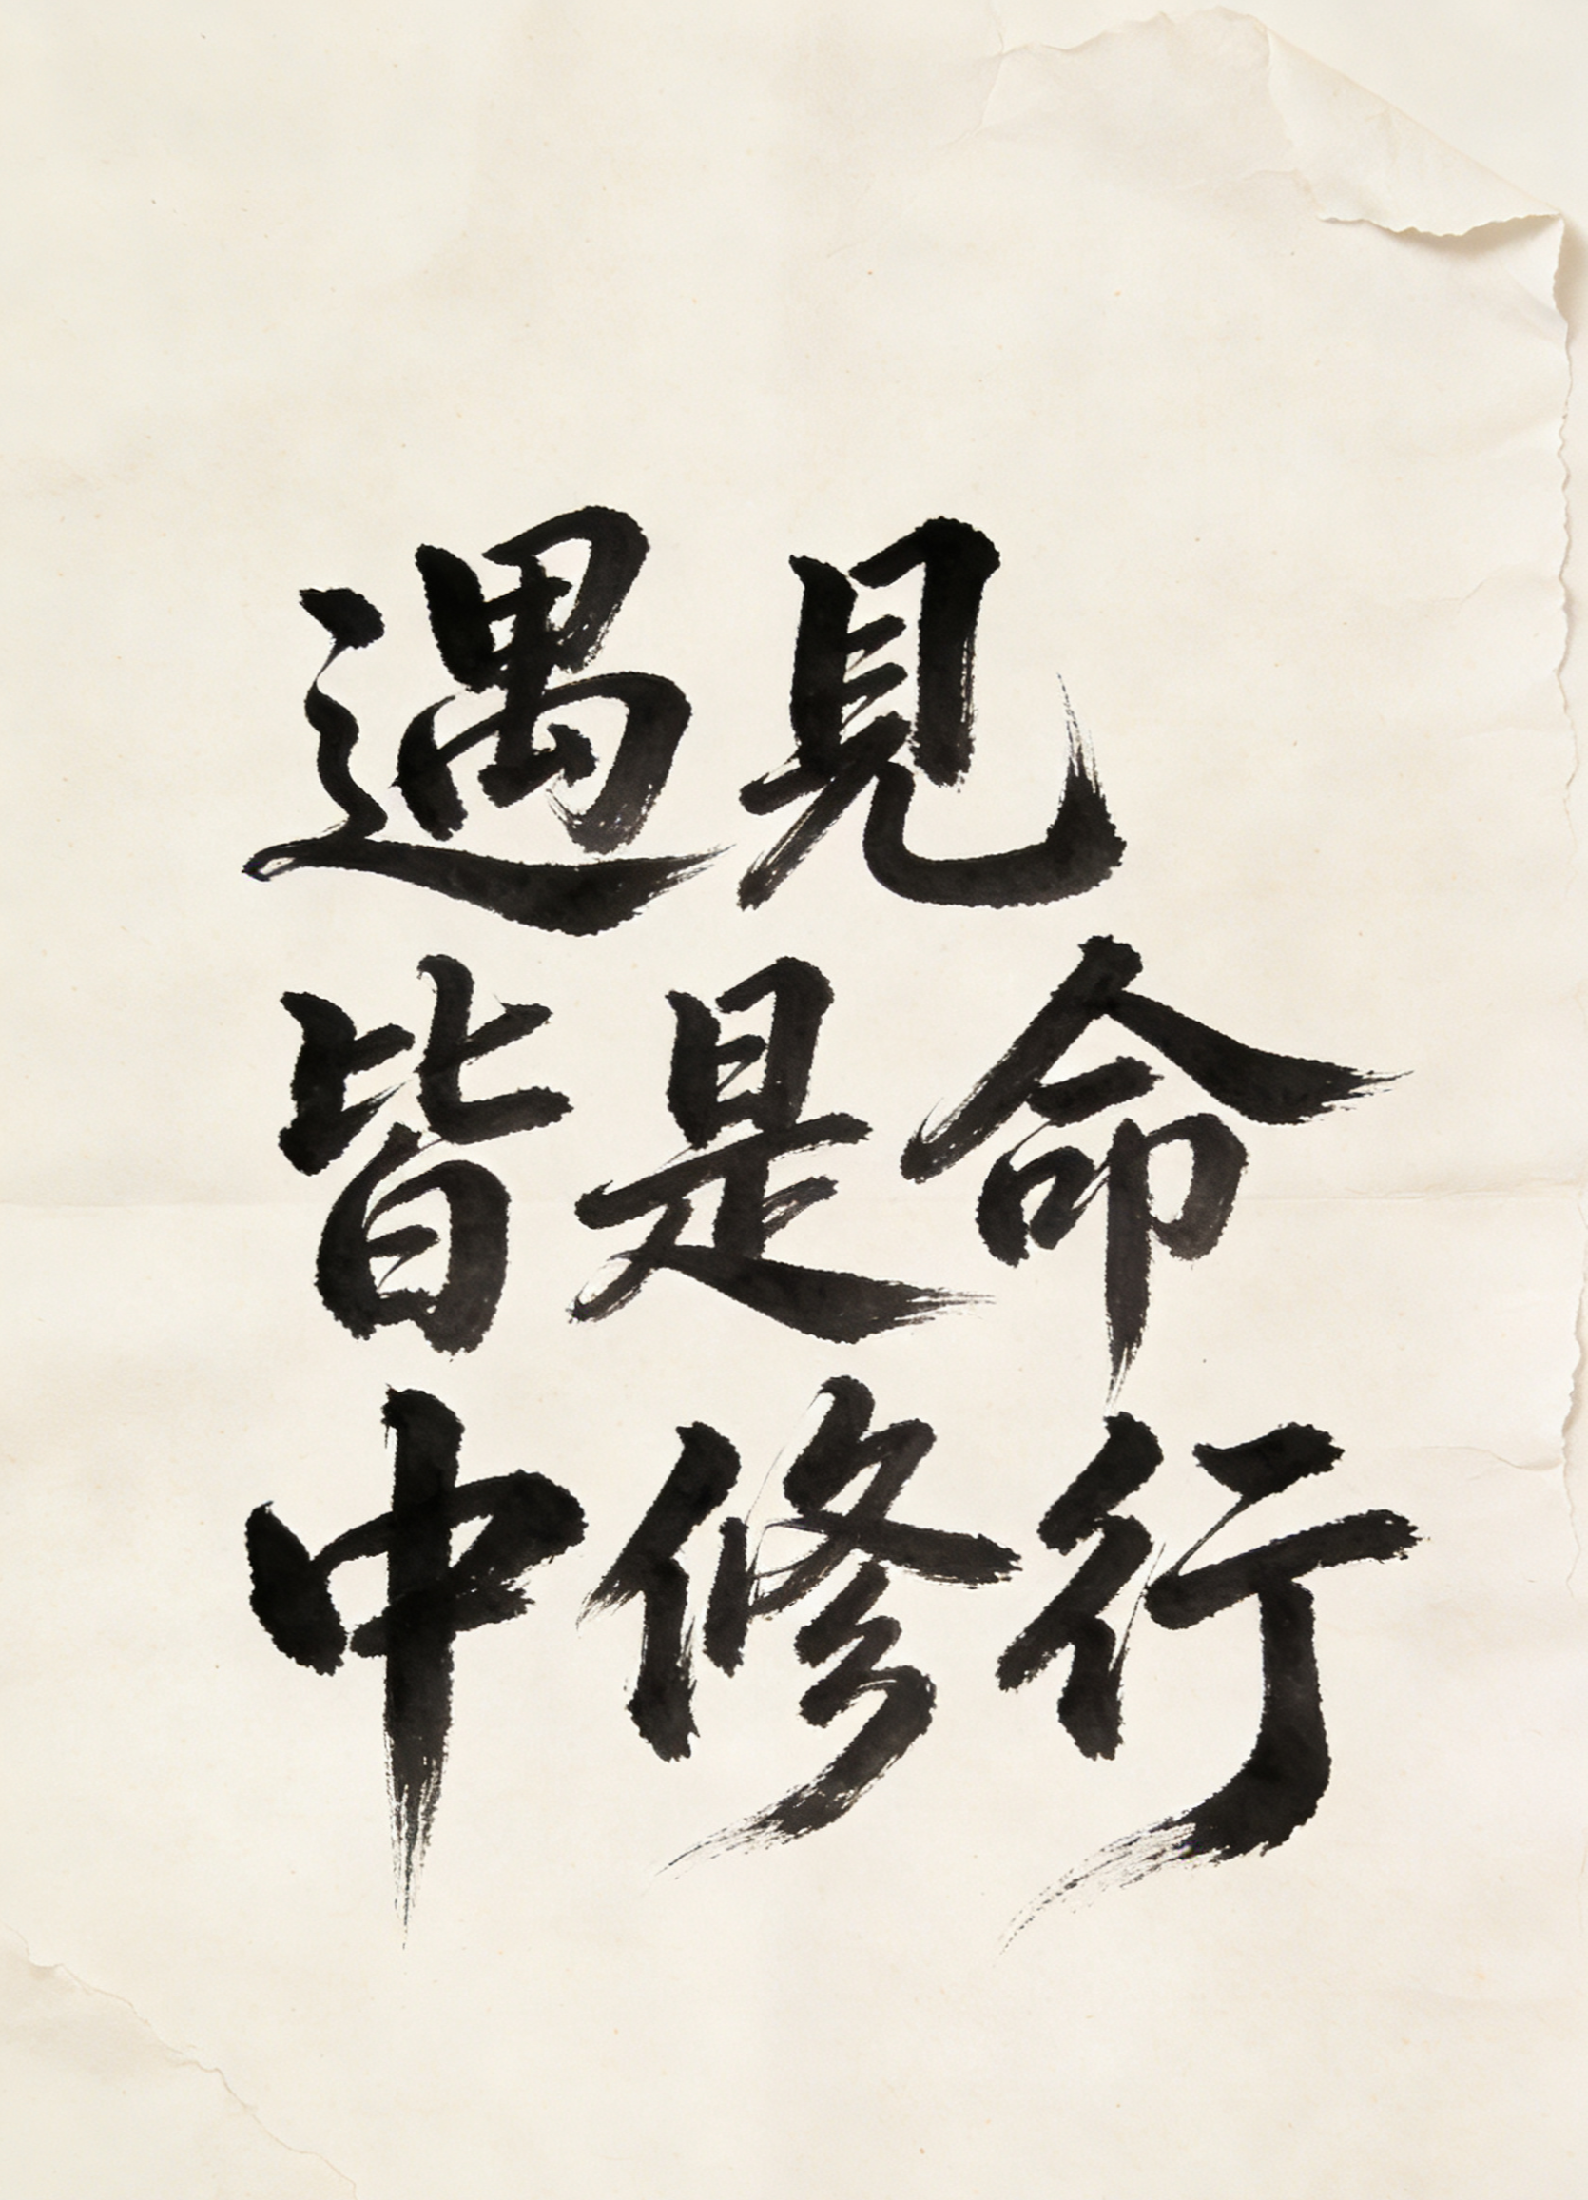 遇見
皆是命
中修行